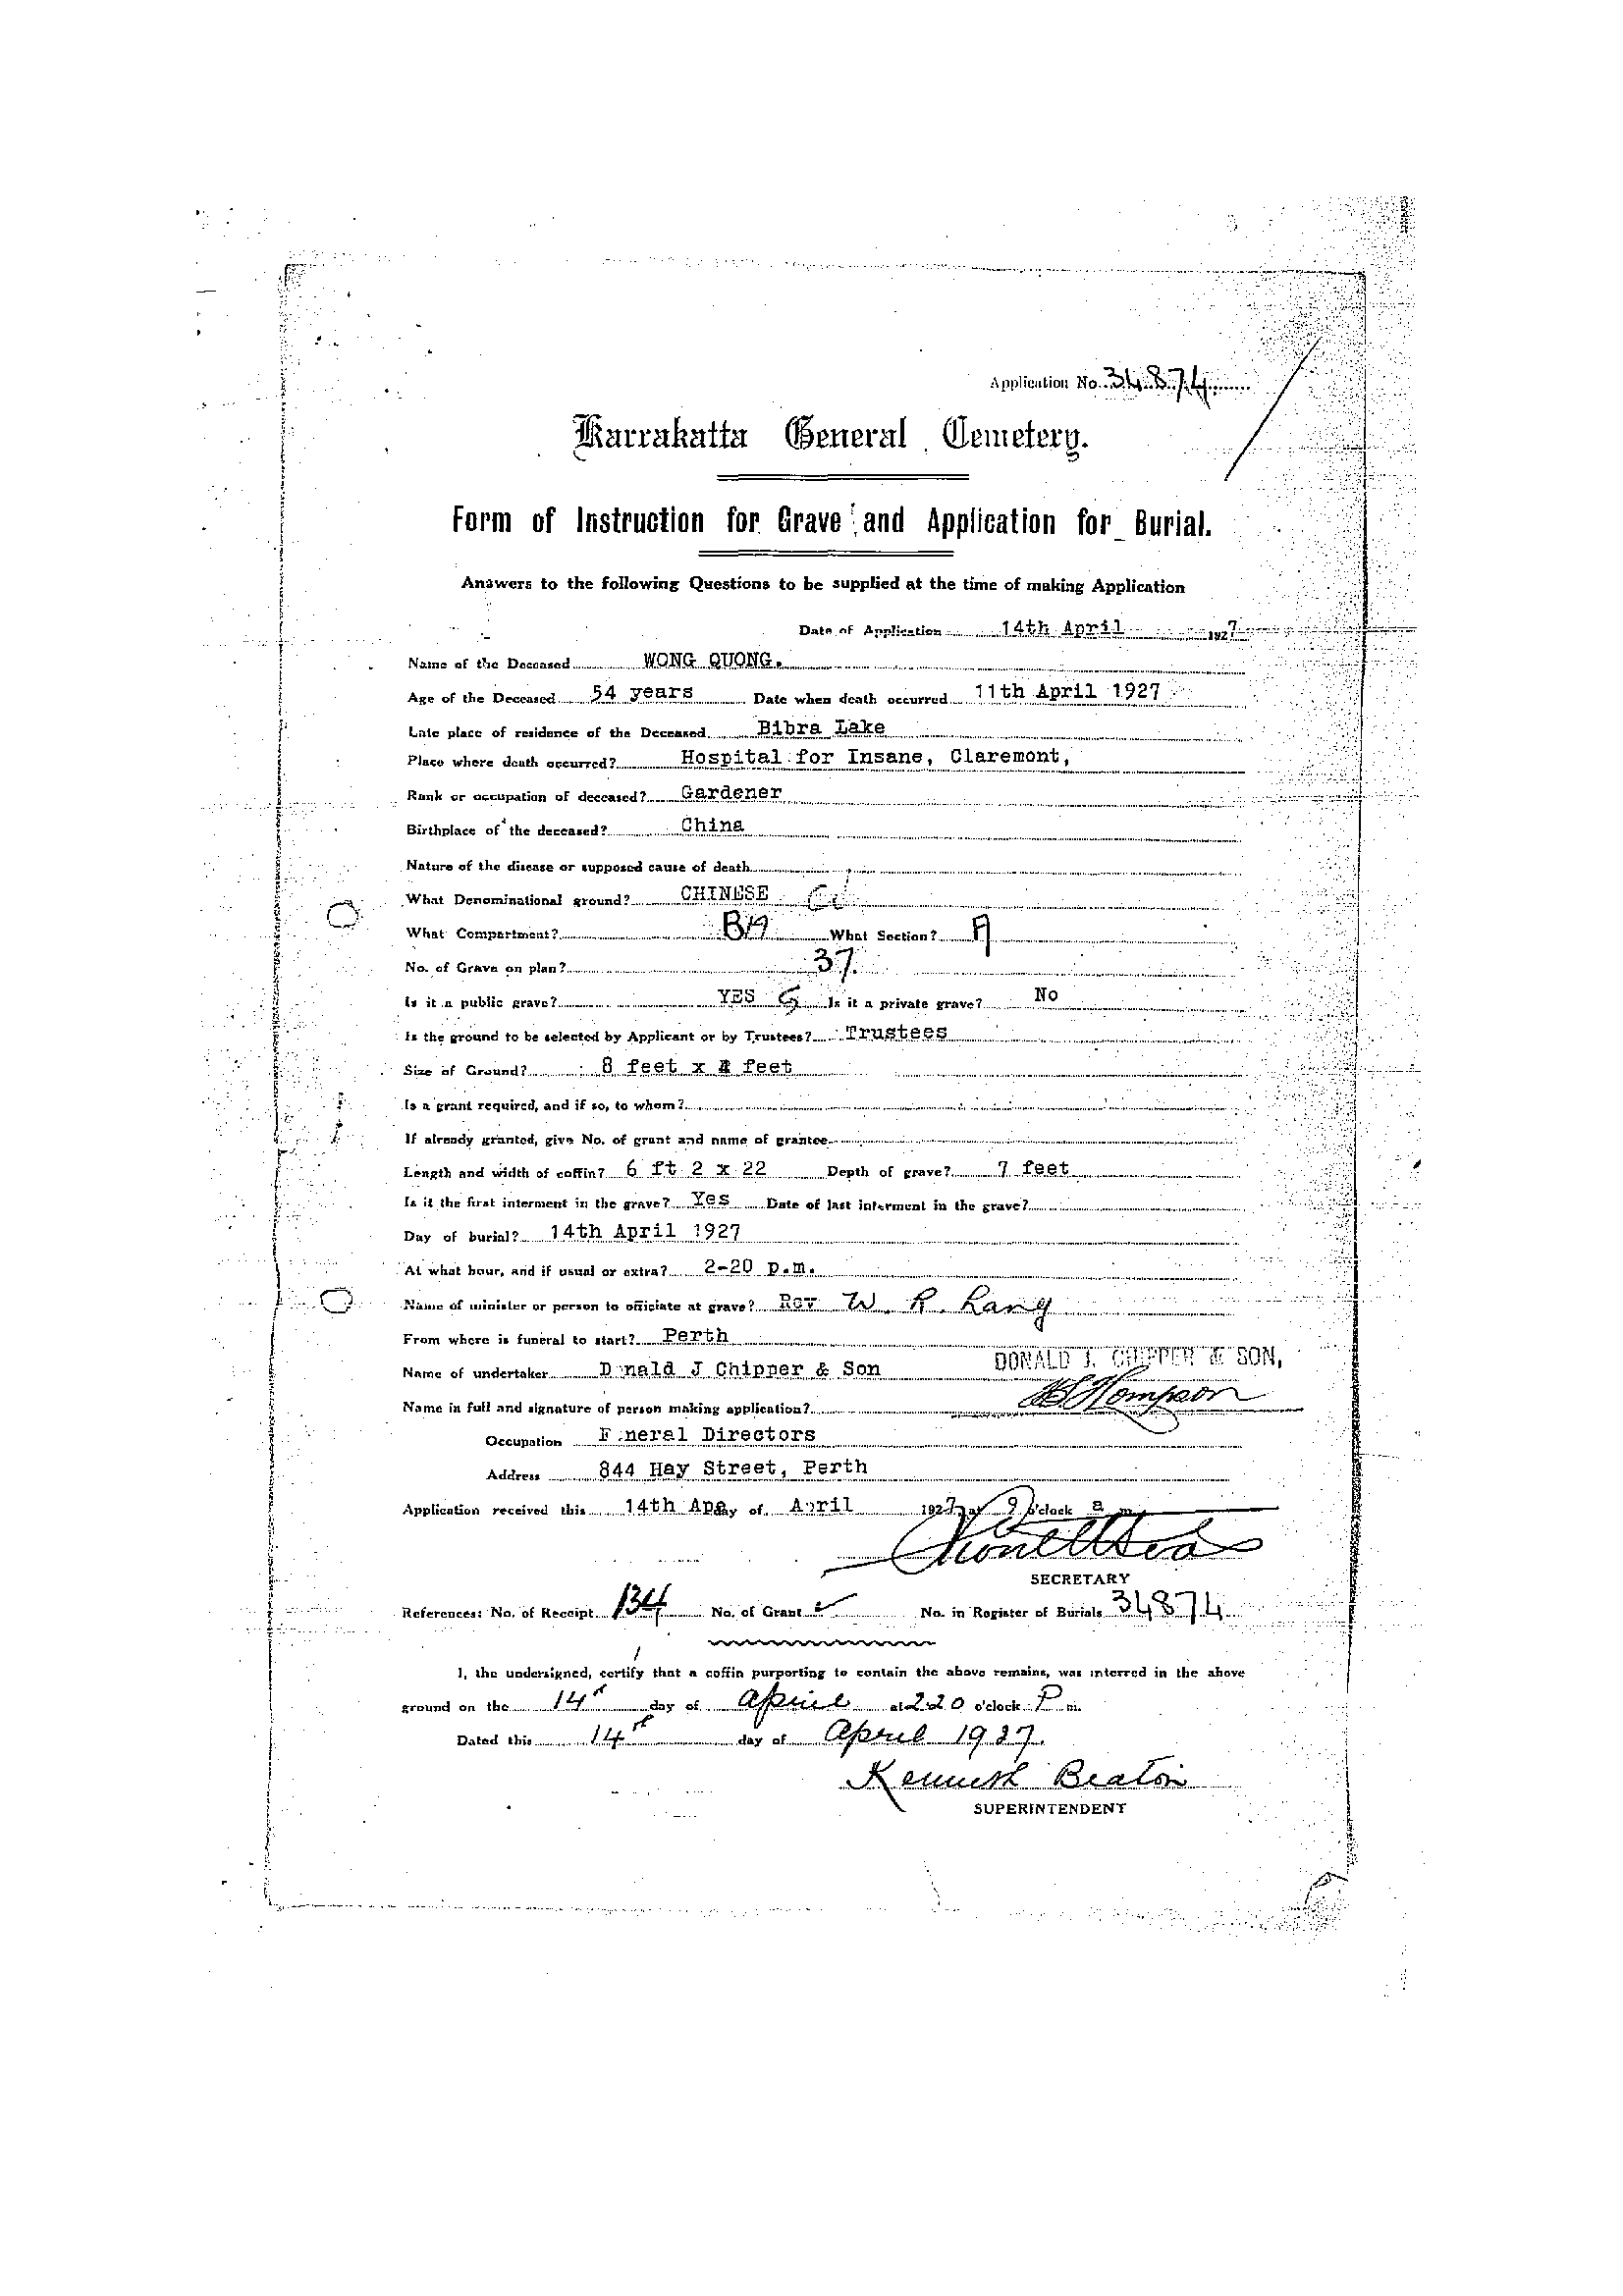 Application No. 34874
Karrakatta General Cemetery.
Form of Instruction for Grave and Application for Burial.
Answers to the following Questions to be supplied at the time of making Application
Date of Application 14th April 1927
Name of the Deceased WONG QUONG.
Age of the Deceased 54 years Date when death occurred 11th April 1927
Late place of residence of the Deceased Bibra Lake
Place where death occurred? Hospital for Insane, Claremont,
Rank or occupation of deceased? Gardener
Birthplace of the deceased? China
Nature of the disease or supposed cause of death
What Denominational ground? CHINESE
What Compartment? BA What Section? A
No. of Grave on plan? 37.
Is it a public grave? YES Is it a private grave? No
Is the ground to be selected by Applicant or by Trustees? Trustees
Size of Ground? 8 feet x 4 feet
Is a grant required, and if so, to whom?
If already granted, give No. of grant and name of grantee
Length and width of coffin? 6 ft 2 x 22 Depth of grave? 7 feet
Is it the first interment in the grave? Yes Date of last interment in the grave?
Day of burial? 14th April 1927
At what hour, and if usual or extra? 2-20 p.m.
Name of minister or person to officiate at grave? Rev W. R. Lang
From where is funeral to start? Perth
DONALD J. CHIPPER & SON,
Name of undertaker Donald J Chipper & Son
Name in full and signature of person making application? Thompson
Occupation Funeral Directors
Address 844 Hay Street, Perth
Application received this 14th day of April 1927 at 9 o'clock a m.
SECRETARY
References: No. of Receipt 134 No. of Grant No. in Register of Burials 34874
I, the undersigned, certify that a coffin purporting to contain the above remains, was interred in the above
ground on the 14th day of April at 2.20 o'clock P m.
Dated this 14th day of April 1927.
Kenneth Beaton
SUPERINTENDENT